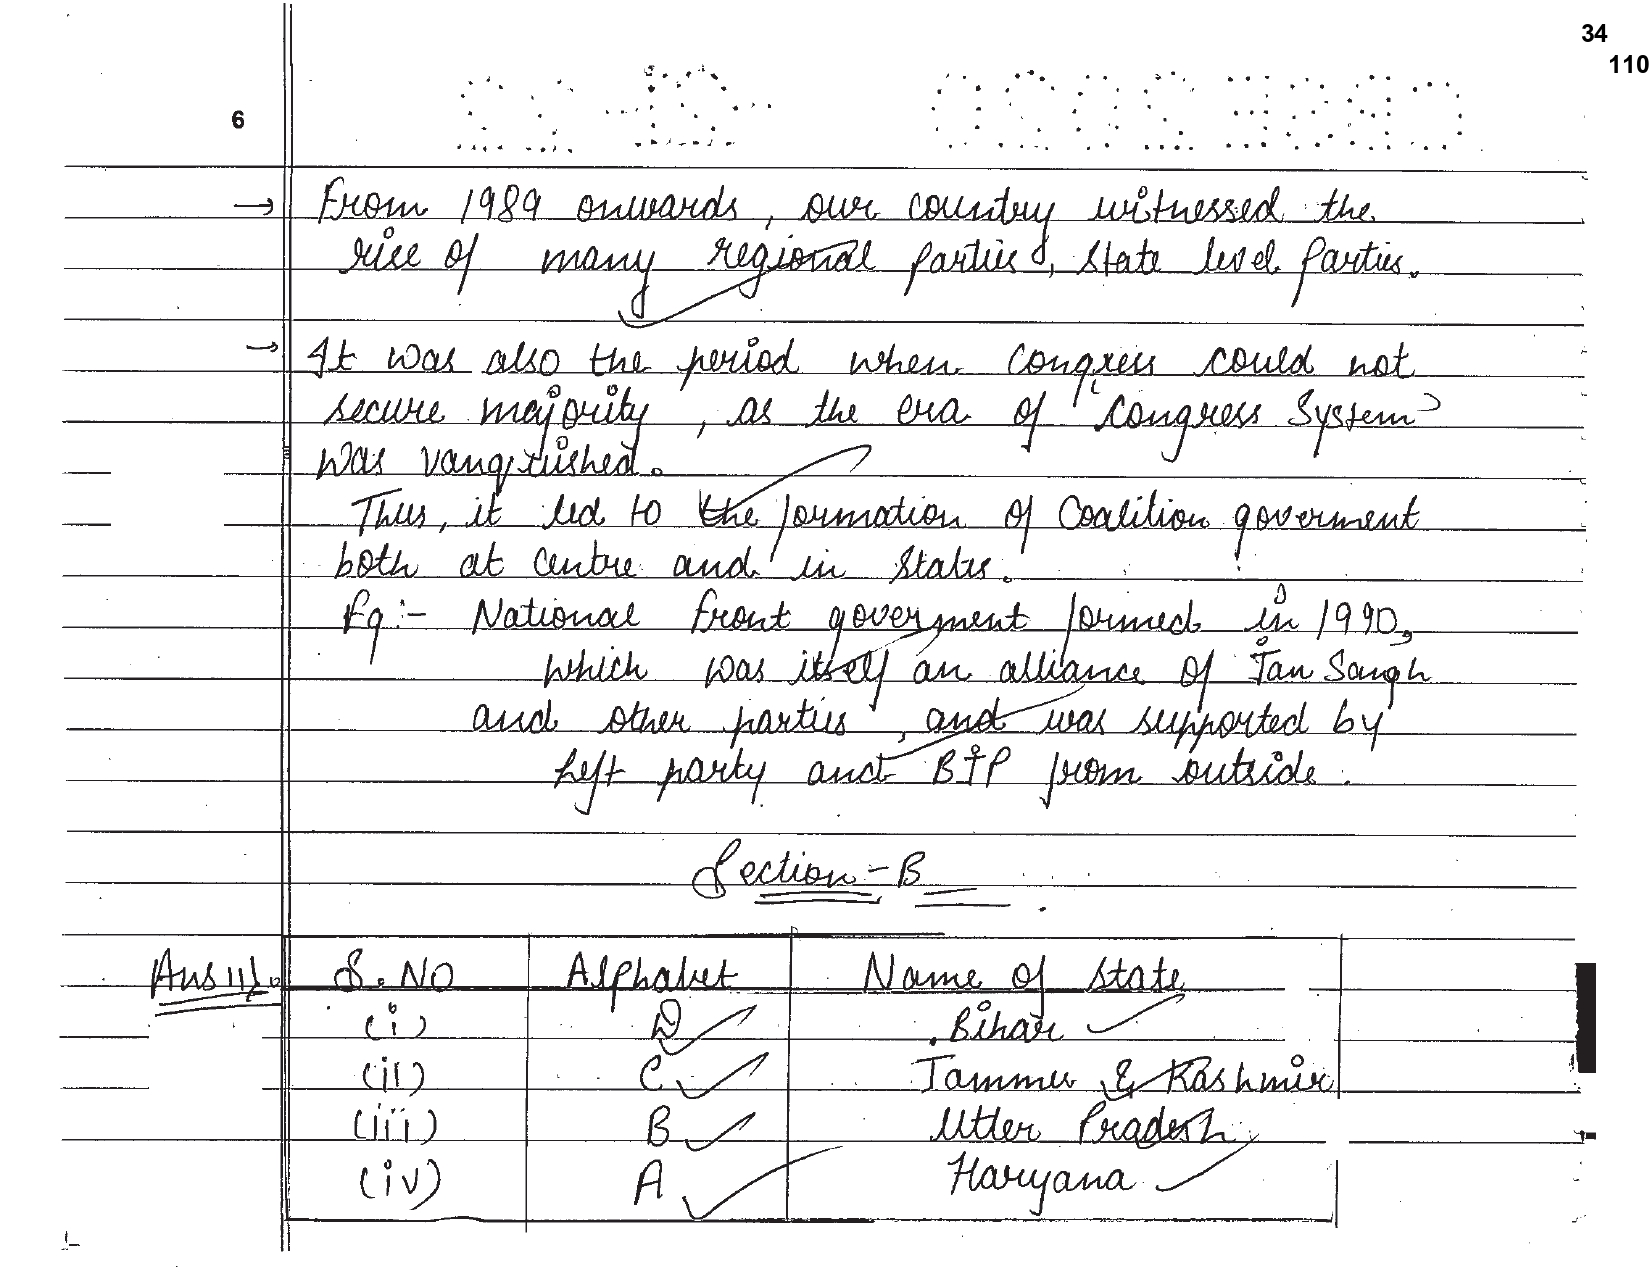 34
110
6
→ From 1989 onwards, our country witnessed the
rise of many regional parties, state level parties.
→ It was also the period when congress could not
secure majority, as the era of "Congress System"
was vanquished.
Thus, it led to the formation of Coalition goverment
both at centre and in states.
Eg:- National front goverment formed in 1990,
which was itself an alliance of Jan Sangh
and other parties, and was supported by
left party and BJP from outside.
Section - B
Ans 11). S.NO Alphabet Name of state
(i) D Bihar
(ii) C Jammu & Kashmir
(iii) B Utter Pradesh
(iv) A Haryana